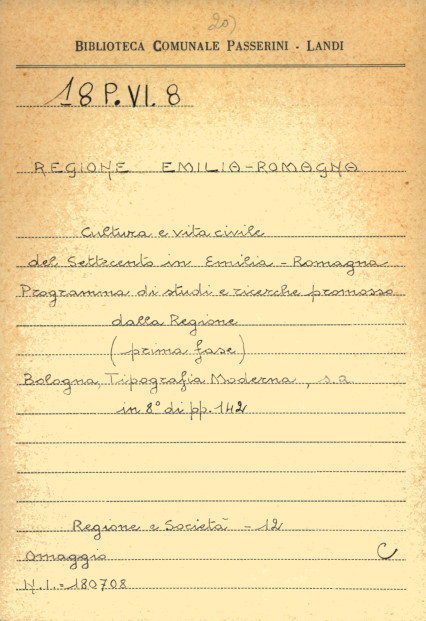 20)
BIBLIOTECA COMUNALE PASSERINI - LANDI
18 P. VI. 8
REGIONE EMILIA-ROMAGNA
Cultura e vita civile
del Settecento in Emilia - Romagna
Programma di studi e ricerche promosso
dalla Regione
(prima fase)
Bologna, Tipografia Moderna, s.a.
in 8° di pp. 142
Regione e Società - 12
Omaggio C
N.I. = 180708